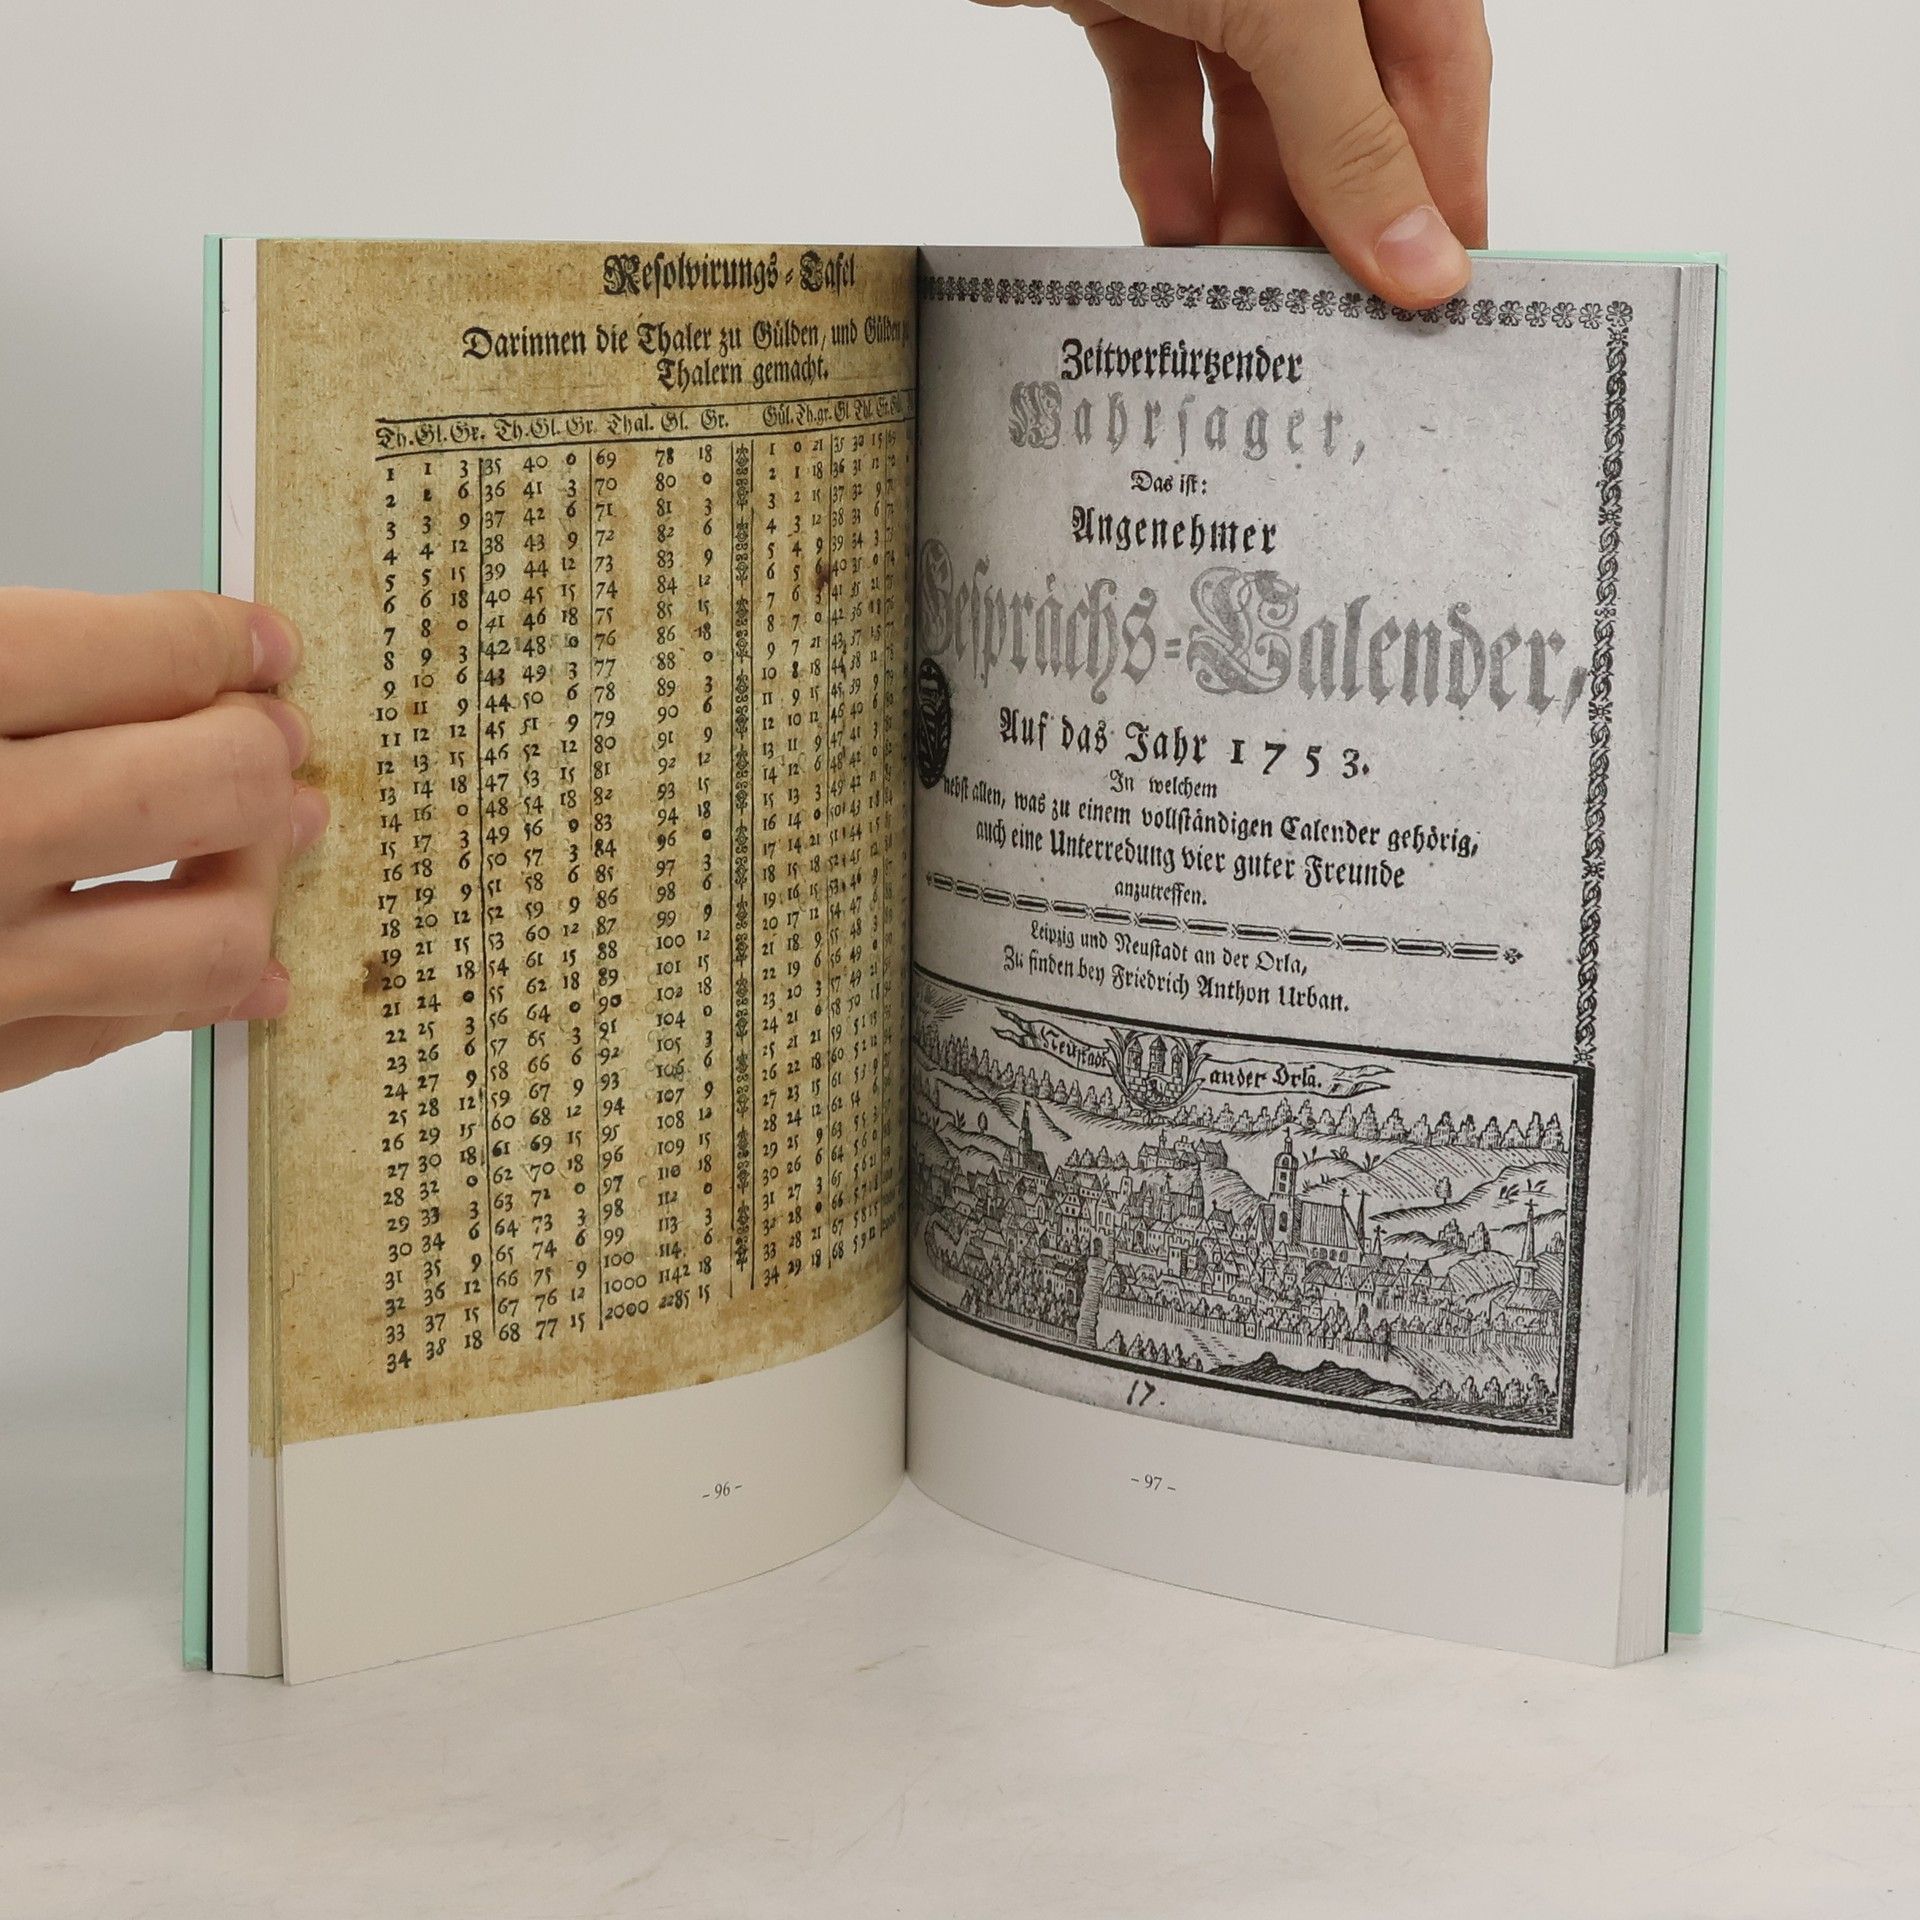 Resolvirungs-Tafel
Darinnen die Thaler zu Gülden, und Gülden
Thalern gemacht.
Th. Gl. Gr. Th. Gl. Gr. Thal. Gl. Gr. Gül. Th. gr. Gl. Thl. Gr.
1 1 3 35 40 0 69 78 18 1 0 21 35 30 15
2 2 6 36 41 3 70 80 0 2 1 18 36 31 12
3 3 9 37 42 6 71 81 3 3 2 15 37 32 9
4 4 12 38 43 9 72 82 6 4 3 12 38 33 6
5 5 15 39 44 12 73 83 9 5 4 9 39 34 3
6 6 18 40 45 15 74 84 12 6 5 6 40 35 0
7 8 0 41 46 18 75 85 15 7 6 3 41 35 21
8 9 3 42 48 0 76 86 18 8 7 0 42 36 18
9 10 6 43 49 3 77 88 0 9 7 21 43 37 15
10 11 9 44 50 6 78 89 3 10 8 18 44 38 12
11 12 12 45 51 9 79 90 6 11 9 15 45 39 9
12 13 15 46 52 12 80 91 9 12 10 12 46 40 6
13 14 18 47 53 15 81 92 12 13 11 9 47 41 3
14 16 0 48 54 18 82 93 15 14 12 6 48 42 0
15 17 3 49 56 0 83 94 18 15 13 3 49 42 21
16 18 6 50 57 3 84 96 0 16 14 0 50 43 18
17 19 9 51 58 6 85 97 3 17 14 21 51 44 15
18 20 12 52 59 9 86 98 6 18 15 18 52 45 12
19 21 15 53 60 12 87 99 9 19 16 15 53 46 9
20 22 18 54 61 15 88 100 12 20 17 12 54 47 6
21 24 0 55 62 18 89 101 15 21 18 9 55 48 3
22 25 3 56 64 0 90 102 18 22 19 6 56 49 0
23 26 6 57 65 3 91 104 0 23 20 3 57 49 21
24 27 9 58 66 6 92 105 3 24 21 0 58 50 18
25 28 12 59 67 9 93 106 6 25 21 21 59 51 15
26 29 15 60 68 12 94 107 9 26 22 18 60 52 12
27 30 18 61 69 15 95 108 12 27 23 15 61 53 9
28 32 0 62 70 18 96 109 15 28 24 12 62 54 6
29 33 3 63 72 0 97 110 18 29 25 9 63 55 3
30 34 6 64 73 3 98 112 0 30 26 6 64 56 0
31 35 9 65 74 6 99 113 3 31 27 3 65 56 21
32 36 12 66 75 9 100 114 6 32 28 0 66 57 18
33 37 15 67 76 12 1000 1142 18 33 28 21 67 58 15
34 38 18 68 77 15 2000 2285 15 34 29 18 68 59 12
– 96 –
Zeitverkürtzender
Wahrsager,
Das ist:
Angenehmer
Gesprächs-Calender,
Auf das Jahr 1753.
In welchem
nebst allen, was zu einem vollständigen Calender gehörig,
auch eine Unterredung vier guter Freunde
anzutreffen.
Leipzig und Neustadt an der Orla,
Zu finden bey Friedrich Anthon Urban.
Neustadt an der Orla.
17.
– 97 –